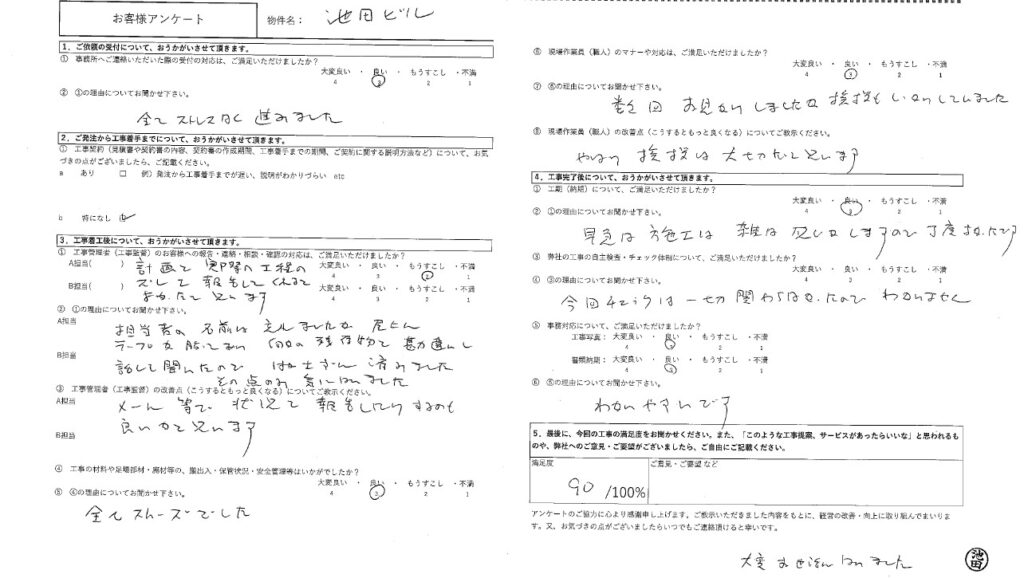 お客様アンケート
物件名： 池田ビル
1．ご依頼の受付について、おうかがいさせて頂きます。
① 事務所へご連絡いただいた際の受付の対応は、ご満足いただけましたか？
大変良い ・ 良い ・ もうすこし ・不満
4 3 2 1
② ①の理由についてお聞かせ下さい。
全て ストレスなく 進みました
2．ご発注から工事着手までについて、おうかがいさせて頂きます。
① 工事契約（見積書や契約書の内容、契約書の作成期間、工事着手までの期間、ご契約に関する説明方法など）について、お気
づきの点がございましたら、ご記載ください。
a あり □ 例）発注から工事着手までが遅い、説明がわかりづらい etc
b 特になし
3．工事着工後について、おうかがいさせて頂きます。
① 工事管理者（工事監督）のお客様への報告・連絡・相談・確認の対応は、ご満足いただけましたか？
A担当( ) 大変良い ・ 良い ・ もうすこし ・不満
4 3 2 1
B担当( ) 大変良い ・ 良い ・ もうすこし ・不満
4 3 2 1
計画と 実際の工程の
ズレて 報告してくれると
よかったと思います
② ①の理由についてお聞かせ下さい。
A担当
担当者の 名前は 忘れましたが 屋上
テープを 貼って
B担当
話して聞いたので 済みました
その点のみ 気になりました
③ 工事管理者（工事監督）の改善点（こうするともっと良くなる）についてご教示ください。
A担当
メール 等で 状況を 報告したりするのも
良いかと思います
B担当
④ 工事の材料や足場部材・廃材等の、搬出入・保管状況・安全管理等はいかがでしたか？
大変良い ・ 良い ・ もうすこし ・不満
4 3 2 1
⑤ ④の理由についてお聞かせ下さい。
全てスムーズでした
⑥ 現場作業員（職人）のマナーや対応は、ご満足いただけましたか？
大変良い ・ 良い ・ もうすこし ・不満
4 3 2 1
⑦ ⑥の理由についてお聞かせ下さい。
数回 お見かけしましたが 挨拶も しっかりしていました
⑧ 現場作業員（職人）の改善点（こうするともっと良くなる）についてご教示ください。
やはり 挨拶は 大切だと思います
4．工事完了後について、おうかがいさせて頂きます。
① 工期（納期）について、ご満足いただけましたか？
大変良い ・ 良い ・ もうすこし ・不満
4 3 2 1
② ①の理由についてお聞かせ下さい。
早急な 施工は 雑な 仕上りしますので 丁度よかったです
③ 弊社の工事の自主検査・チェック体制について、ご満足いただけましたか？
④ ③の理由についてお聞かせ下さい。
今回 は 一切 関わらなかったので わかりません
⑤ 事務対応について、ご満足いただけましたか？
工事写真: 大変良い ・ 良い ・ もうすこし ・不満
4 3 2 1
書類納期: 大変良い ・ 良い ・ もうすこし ・不満
4 3 2 1
⑥ ⑤の理由についてお聞かせ下さい。
わかりやすいです
5．最後に、今回の工事の満足度をお聞かせください。また、「このような工事提案、サービスがあったらいいな」と思われるも
のや、弊社へのご意見・ご要望がございましたら、ご自由にご記載ください。
満足度
90 /100%
ご意見・ご要望 など
アンケートのご協力に心より感謝申し上げます。ご教示いただきました内容をもとに、経営の改善・向上に取り組んでまいりま
す。又、お気づきの点がございましたらいつでもご連絡頂けると幸いです。
大変 お世話に なりました
池田